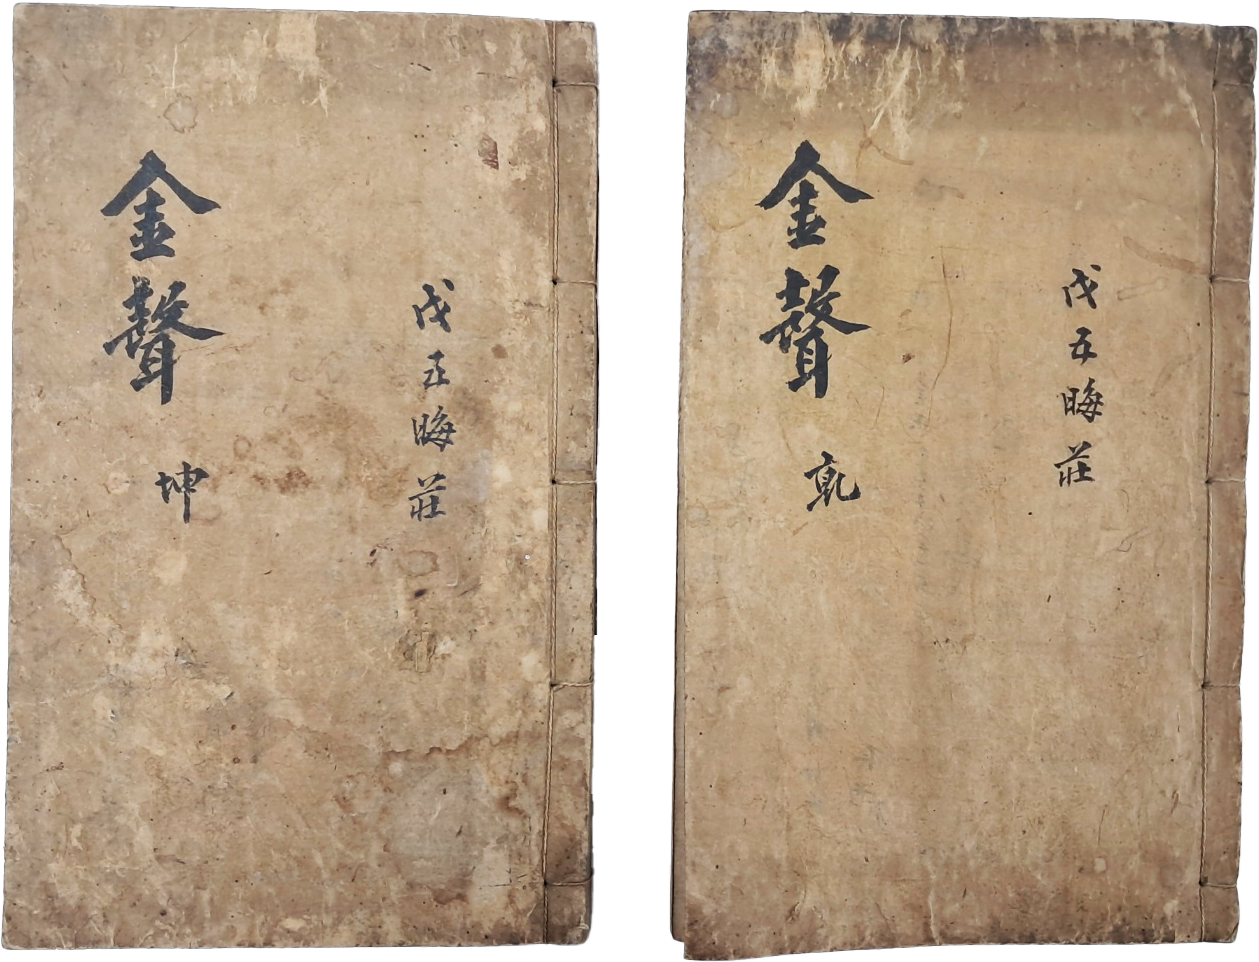 戊五晦莊
金聲 乾
戊五晦莊
金聲 坤